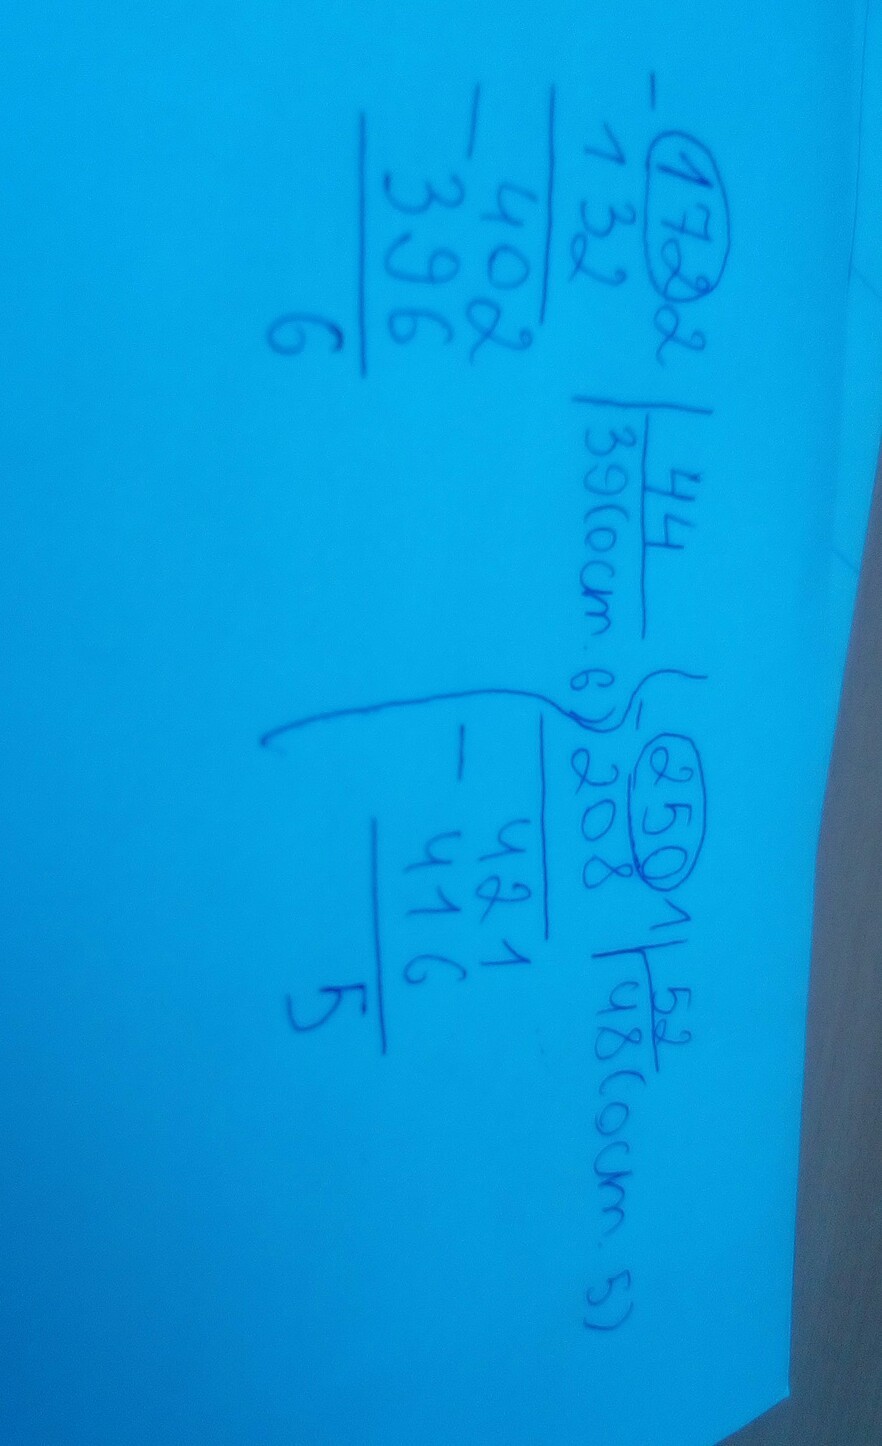 -1722 | 44
132 39(ост. 6)
-402
-396
6
-2501 | 52
208 48(ост. 5)
-421
416
5